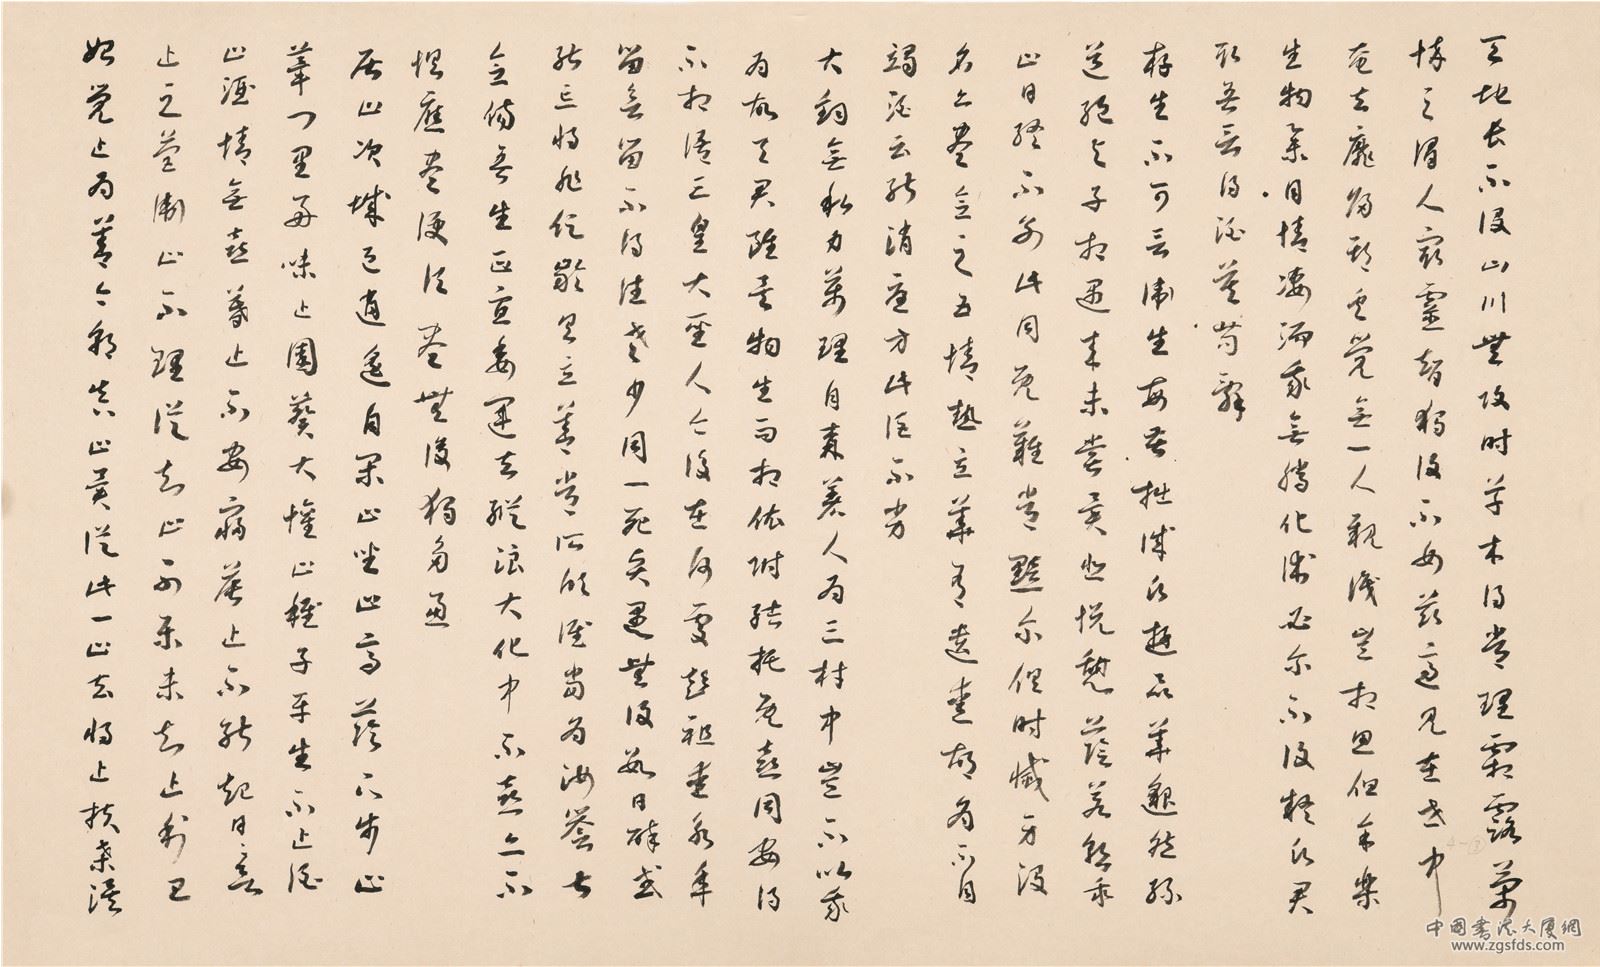 天地長不沒山川無改時草木得常理霜露榮
悴之謂人最靈智獨復不如茲適見在世中
奄去靡歸期奚覺無一人親識豈相思但余平
生物舉目情凄洏我無騰化術必爾不復疑願君
取吾言得酒莫苟辭
存生不可言衛生每苦拙誠願遊崑華邈然茲
道絕與子相遇來未嘗異悲悅憩蔭若暫乖
止日終不別此同既難常黯爾俱時滅身沒
名亦盡念之五情熱立善有遺愛胡為不自
竭酒云能消憂方此詎不劣
大鈞無私力萬理自森著人為三才中豈不以我
為故與君雖異物生而相依附結托既喜同安得
不相語三皇大聖人今復在何處彭祖愛永年
欲留不得住老少同一死賢愚無復數日醉或
能忘將非促齡具立善常所欣誰當為汝譽甚
念傷吾生正宜委運去縱浪大化中不喜亦不
懼應盡便須盡無復獨多慮
居止次城邑逍遙自閑止坐止高蔭下步止
蓽門裏好味止園葵大懽止稚子平生不止酒
止酒情無喜暮止不安寢晨止不能起日日欲
止之營衛止不理徒知止不樂未知止利己
始覺止為善今朝真止矣從此一止去將止扶桑涘
中国书法大厦網
www.zgsfds.com